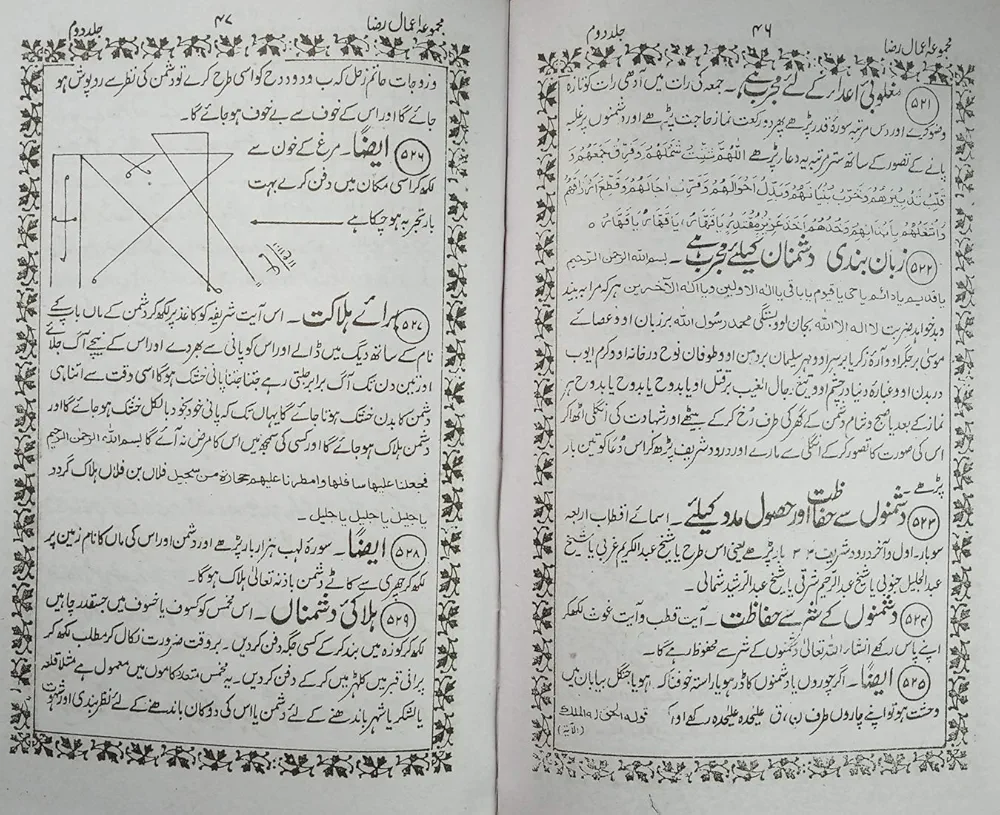 مجموعہ اعمال رضا ۴۶ جلد دوم
۵۲۱ مغلوبئ اعداء کے لئے مجرب ہے۔ جمعہ کی رات میں آدھی رات کو تازہ
وضو کرے اور دس مرتبہ سورۂ قدر پڑھے پھر دو رکعت نماز حاجت پڑھے اور دشمنوں پر غلبہ
پانے کے تصور کے ساتھ ستر مرتبہ یہ دعا پڑھے اللهم شتت شملهم وفرق جمعهم و
قلب تدبيرهم وخرب بنيانهم وبدل احوالهم وقرب اجالهم وقطع
واشغلهم بابدانهم وخذهم اخذ عزيز مقتدر یا قھار، یا قھار یا قھار ٥
۵۲۲ زبان بندی دشمنان کیلئے مجرب ہے۔ بسم الله الرحمن الرحیم
یا قدیم یا دائم یا حی یا قیوم یا باقی یا اله الاولین ویا اله الآخرین ہر کہ مرا بہ بیند
وبدخواہد ضربت لا اله الا الله بجان او وبستگی محمد رسول الله بر زبان او وعصائے
موسیٰ بر جگر او وآرۂ زکریا بر سر او ومہر سلیمان بر دہن او وطوفان نوح در خانۂ او وکرم ایوب
در بدن او وغبارۂ دنیا در چشم او وتیغ رجال الغیب بر قتل او یا بدوح یا بدوح یا بدوح ہر
نماز کے بعد یا صبح وشام دشمن کے گھر کی طرف رُخ کر کے بیٹھے اور شہادت کی انگلی اٹھا کر
اس کی صورت کا تصور کر کے انگلی سے مارے اور درود شریف پڑھ کر اس دُعا کو تین بار
پڑھے۔
۵۲۳ دشمنوں سے حفاظت اور حصول مدد کیلئے۔ اسمائے اقطاب اربعہ
سو بار۔ اول وآخر درود شریف ۳ ۳ بار پڑھے یعنی اس طرح یا شیخ عبدالکریم غربی یا شیخ
عبدالجلیل جنوبی یا شیخ عبدالرحیم شرقی یا شیخ عبدالرشید شمالی۔
۵۲۴ دشمنوں کے شر سے حفاظت۔ آیت قطب وآیت غوث لکھ کر
اپنے پاس رکھے انشاء اللہ تعالیٰ دشمنوں کے شر سے محفوظ رہے گا۔
۵۲۵ ایضًا۔ اگر چوروں یا دشمنوں کا ڈر ہو یا راستہ خوفناک ہو یا جنگل بیابان میں
وحشت ہو تو اپنے چاروں طرف ن، ق علیحدہ علیحدہ رکھے اور قوله الحق وله الملك
(الآیۃ)
مجموعہ اعمال رضا ۴۷ جلد دوم
جائے گا اور اس کے خوف سے بے خوف ہو جائے گا۔
۵۲۶ ایضًا۔ مرغ کے خون سے
لکھ کر اسی مکان میں دفن کرے بہت
بار تجربہ ہو چکا ہے
۵۲۷ برائے ہلاکت۔ اس آیت شریفہ کو کاغذ پر لکھ کر دشمن کے ماں باپ کے
نام کے ساتھ دیگ میں ڈالے اور اس کو پانی سے بھر دے اور اس کے نیچے آگ جلائے
اور تین دن تک آگ برابر جلتی رہے جتنا جتنا پانی خشک ہوگا اسی وقت سے اتنا ہی
دشمن کا بدن خشک ہوتا جائے گا یہاں تک کہ پانی خود بخود بالکل خشک ہو جائے گا اور
دشمن ہلاک ہو جائے گا اور کسی کی سمجھ میں اس کا مرض نہ آئے گا بسم الله الرحمن الرحیم
فجعلنا عالیها سافلها وامطرنا علیهم حجارة من سجیل فلاں بن فلاں ہلاک گردد
یا جلیل یا جلیل یا جلیل۔
۵۲۸ ایضًا۔ سورۂ لہب ہزار بار پڑھے اور دشمن اور اس کی ماں کا نام زمین پر
لکھ کر چھری سے کاٹے دشمن باذنہ تعالیٰ ہلاک ہوگا۔
۵۲۹ ہلاکئ دشمناں۔ اس مخمس کو کسوف یا خسوف میں جسقدر چاہیں
لکھ کر کوزہ میں بند کر کے کسی جگہ دفن کر دیں۔ بروقت ضرورت نکال کر مطلب لکھ کر
پرانی قبر میں کلہڑ میں کر کے دفن کر دیں۔ یہ مخمس متعدد کاموں میں معمول ہے مثلاً قلعہ
یا لشکر یا شہر باندھنے کے لئے دشمن یا اس کی دوکان باندھنے کے لئے نظر بندی اور شہوت